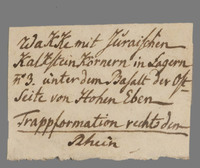 Wakke mit Juraischen
Kalksteinkörnern in Lagern
N° 3. unter dem Basalt der Ost
Seite von Hohen Eben
Trappformation rechts dem
Rhein